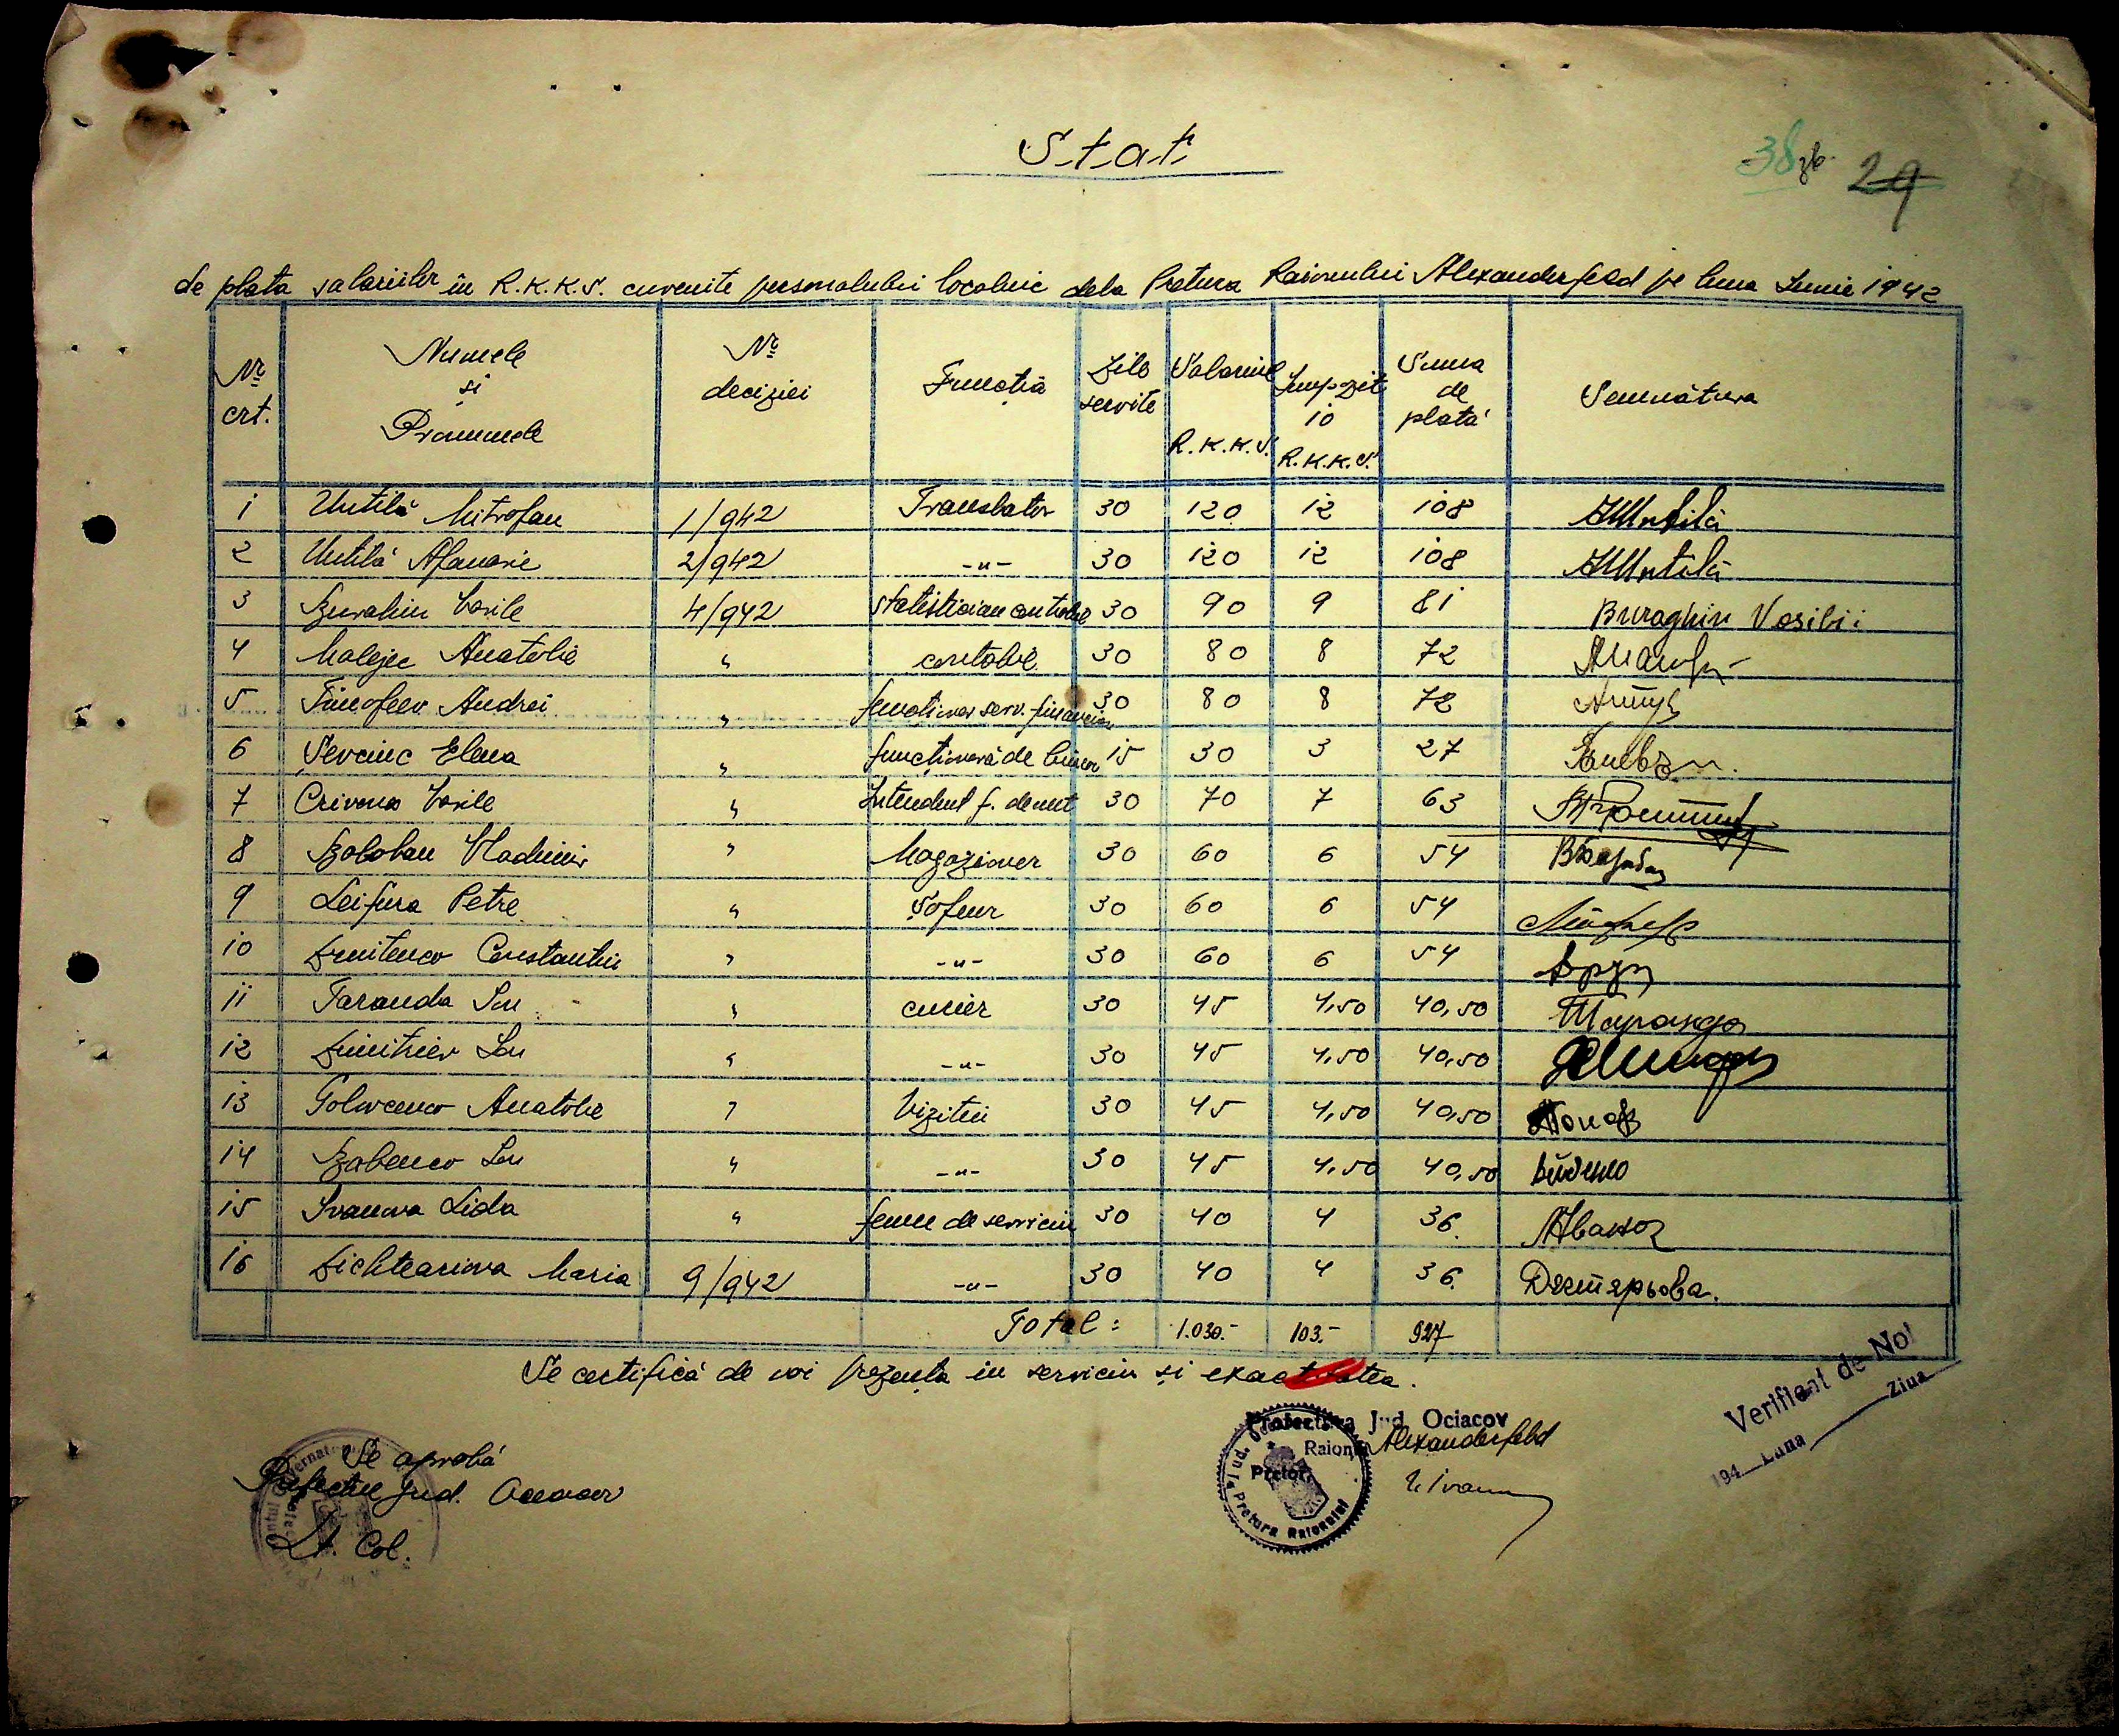 Stat
38 29
de plata salariilor în R.K.K.S. cuvenite personalului localnic dela Pretura Raionului Alexanderfeld pe luna Iunie 1942
Nr. crt. Numele și Pronumele Nr. deciziei Functia Zile servite Salariul R.K.K.S. Impozit 10 R.K.K.S. Suma de plată Semnătura
1 Untilă Mitrofan 1/942 Translator 30 120 12 108 Untilă
2 Untilă Afanasie 2/942 -"- 30 120 12 108 Untilă
3 Vasile 4/942 Statistician contabil 30 90 9 81 Buraghin Vasilii
4 Malejec Anatolie " contabil 30 80 8 72
5 Timofeev Andrei " funcționar serv. financiar 30 80 8 72
6 Șevciuc Elena " funcționară de birou 15 30 3 27
7 Crivonos Vasile " Intendent f. de unt 30 70 7 63
8 Boloban Vladimir " Magazioner 30 60 6 54
9 Leifura Petre " Șofeur 30 60 6 54
10 Constantin " -"- 30 60 6 54
11 Taranda Ion " curier 30 45 4,50 40,50 Таранда
12 Dimitriev Ion " -"- 30 45 4,50 40,50
13 Golovcenco Anatolie " Vizitiu 30 45 4,50 40,50
14 Babenco Ion " -"- 30 45 4,50 40,50
15 Ivanova Lida " femeie de serviciu 30 40 4 36
16 Dichteariova Maria 9/942 -"- 30 40 4 36 Дехтярьова.
Total: 1.030.- 103.- 927
Se certifică de noi prezența in serviciu și exactitatea.
Se aprobă
Prefectul Jud. Oceacov
Lt. Col.
Prefectura Jud. Ociacov
Raion Alexanderfeld
Pretor,
Pretura Raionului
Verificat de Noi
194 Luna Ziua